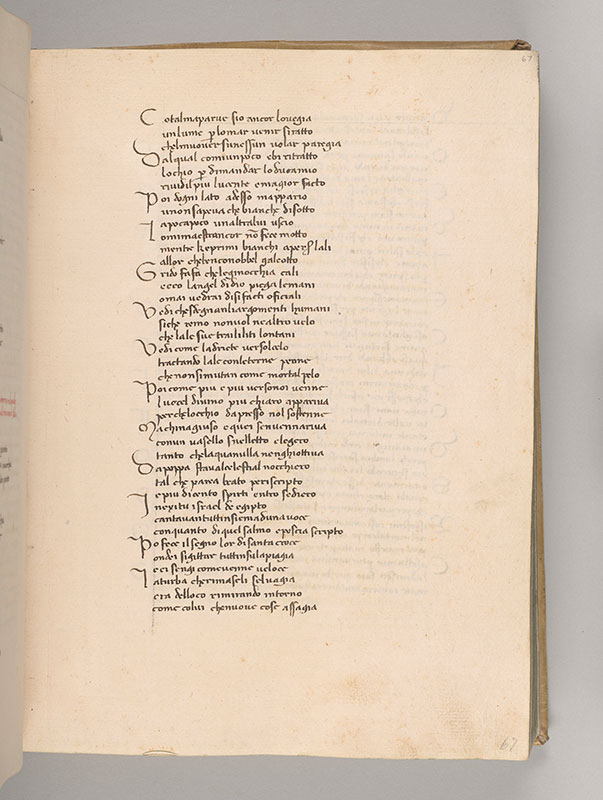 67
Cotalmaparue sio ancor lo uegia
un lume p̱ lo mar uenir si ratto
chel muouer suo nessun uolar paregia
Dal qual comiunpoco ebi ritratto
lochio p̱ dimandar lo duo mio
riuidil piu lucente e magior facto
Poi dogni lato adesso mappario
un non sapeua che bianche disotto
a poco apoco un altra lui uscio
Lo mi maestro ancor nō fece motto
mentre ke primi bianchi aperser lali
allor che ben conobbe il galeotto
Grido fa fa che le ginocchia cali
ecco langel di dio piega le mani
omai uedrai di si facti oficiali
Vedi che sdegna nli argomenti humani
siche remo non uol ne altro uelo
che lale sue tra i liliti lontani
Vedi come ladricte uerso lcelo
tractando laLe con leterne penne
che non si mutan come mortal pelo
Poi come piu e piu uerso noi uenne
luccel diuino piu chiaro appariua
per che locchio da presso nol sostenne
Ma china giuso e quei sen uenne ariua
con un uasello snelletto e legero
tanto che laqua nulla ne nghiottiua
Da poppa staua lo celestial nocchiero
tal che parea beato per iscripto
e piu di cento spirti entro sediero
In exitu israel de egipto
cantauan tutti insieme ad una uoce
con quanto di quel salmo e poscia scripto
Po fece il segno lor di santa croce
ondei si gittar tutti in su la piagia
e ei sen gi come uenne ueloce
La turba che rimase li seluagia
era delloco rimirando intorno
come colui che nuoue cose assagia
67